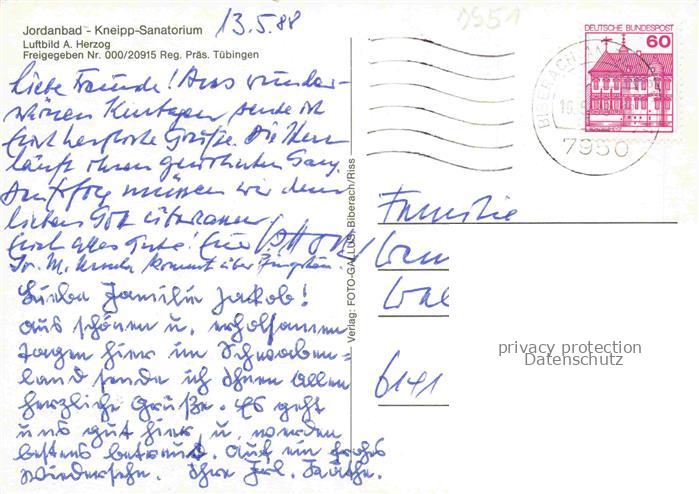 13.5.88
Jordanbad - Kneipp-Sanatorium
Luftbild A. Herzog
Freigegeben Nr. 000/20915 Reg. Präs. Tübingen
DEUTSCHE BUNDESPOST
60
BIBERACH
7950
Liebe Freunde! Aus wunder-
schönen Kurtagen sende ich
Euch herzliche Grüße. Die Kur
läuft ihren gewohnten Gang.
Den Erfolg müssen wir dem
lieben Gott überlassen.
Euch alles Gute! Eure
Sr. M. kommt über Pfingsten!
Liebe Familie Jakob!
Aus schönen u. erholsamen
Tagen hier im Schwaben=
land sende ich Ihnen allen
herzliche Grüße. Es geht
uns gut hier u. werden
bestens betreut. Auf ein frohes
Wiedersehn. Ihre Frl.
Verlag: FOTO-GALLUS, Biberach/Riss
Familie
6141
privacy protection
Datenschutz